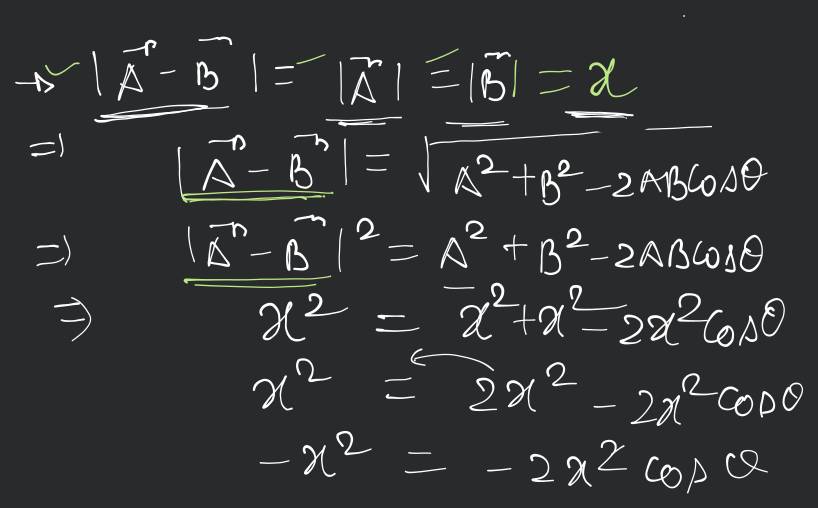 → ✓ |A⃗ - B⃗| = |A⃗| = |B⃗| = x
⇒ |A⃗ - B⃗| = √A² + B² - 2ABcosθ
⇒ |A⃗ - B⃗|² = A² + B² - 2ABcosθ
⇒ x² = x² + x² - 2x²cosθ
x² = 2x² - 2x²cosθ
-x² = -2x² cosθ